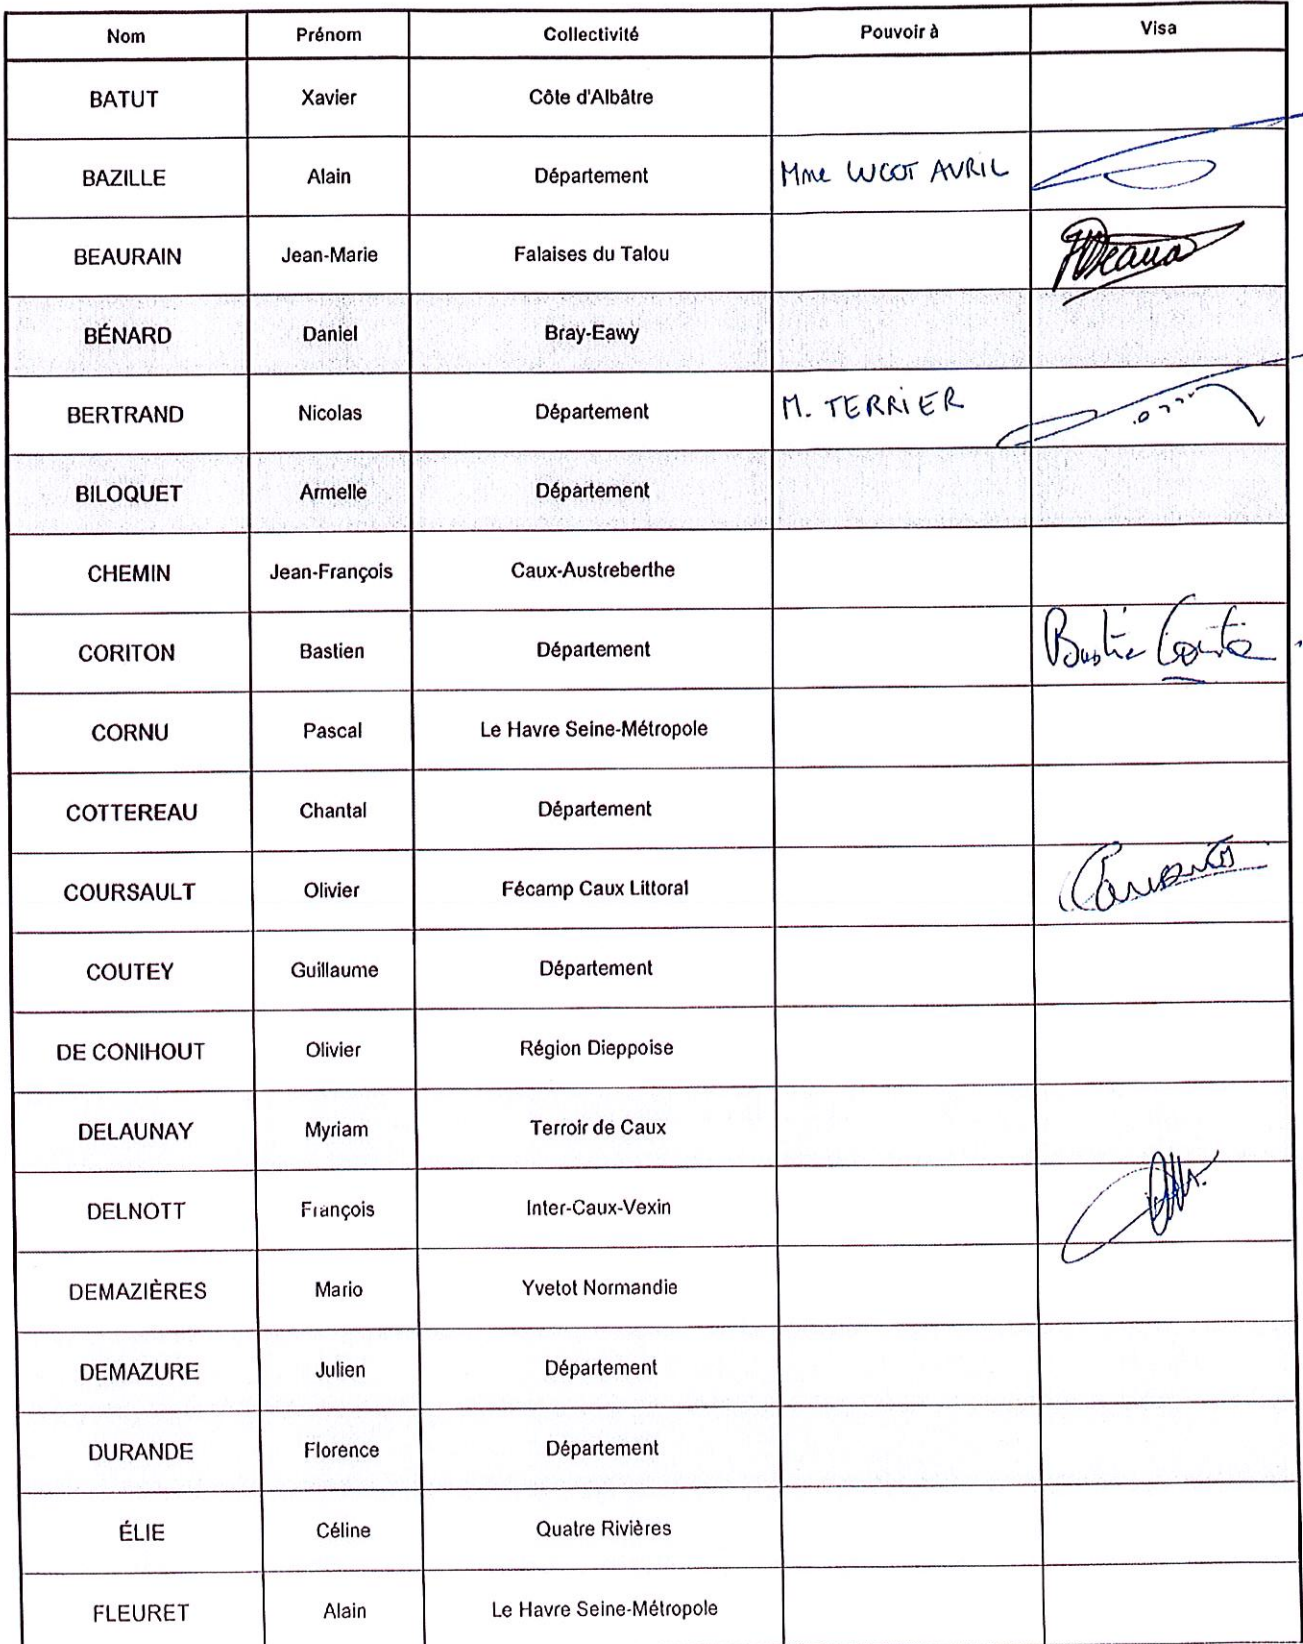 Nom Prénom Collectivité Pouvoir à Visa
BATUT Xavier Côte d'Albâtre
BAZILLE Alain Département Mme LUCOT AVRIL
BEAURAIN Jean-Marie Falaises du Talou
BÉNARD Daniel Bray-Eawy
BERTRAND Nicolas Département M. TERRIER
BILOQUET Armelle Département
CHEMIN Jean-François Caux-Austreberthe
CORITON Bastien Département
CORNU Pascal Le Havre Seine-Métropole
COTTEREAU Chantal Département
COURSAULT Olivier Fécamp Caux Littoral
COUTEY Guillaume Département
DE CONIHOUT Olivier Région Dieppoise
DELAUNAY Myriam Terroir de Caux
DELNOTT François Inter-Caux-Vexin
DEMAZIÈRES Mario Yvetot Normandie
DEMAZURE Julien Département
DURANDE Florence Département
ÉLIE Céline Quatre Rivières
FLEURET Alain Le Havre Seine-Métropole